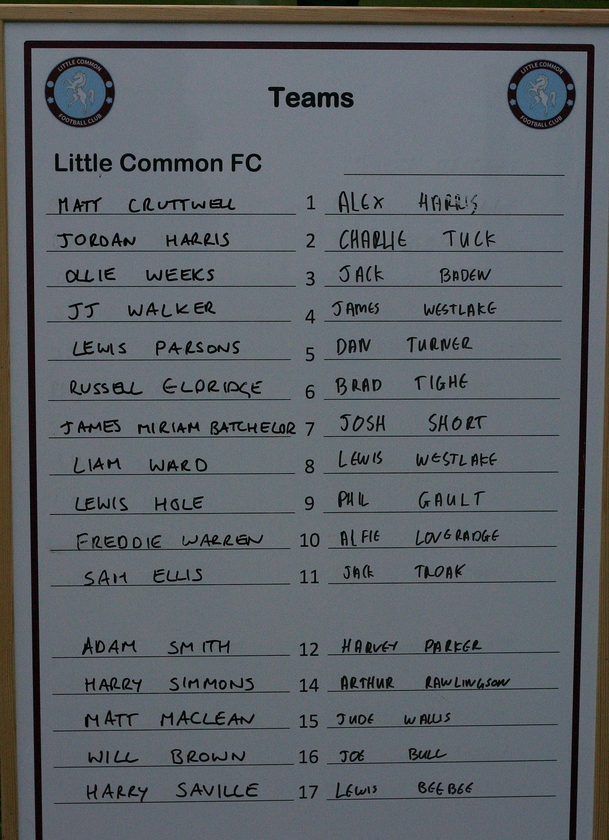 LITTLE COMMON FOOTBALL CLUB
LITTLE COMMON FOOTBALL CLUB
Teams
Little Common FC
MATT CRUTTWELL 1 ALEX HARRIS
JORDAN HARRIS 2 CHARLIE TUCK
OLLIE WEEKS 3 JACK BADEW
JJ WALKER 4 JAMES WESTLAKE
LEWIS PARSONS 5 DAN TURNER
RUSSELL ELDRIDGE 6 BRAD TIGHE
JAMES MIRIAM BATCHELOR 7 JOSH SHORT
LIAM WARD 8 LEWIS WESTLAKE
LEWIS HOLE 9 PHIL GAULT
FREDDIE WARREN 10 ALFIE LOVERADGE
SAM ELLIS 11 JACK TROAK
ADAM SMITH 12 HARVEY PARKER
HARRY SIMMONS 14 ARTHUR RAWLINGSON
MATT MACLEAN 15 JUDE WALLIS
WILL BROWN 16 JOE BULL
HARRY SAVILLE 17 LEWIS BEEBEE